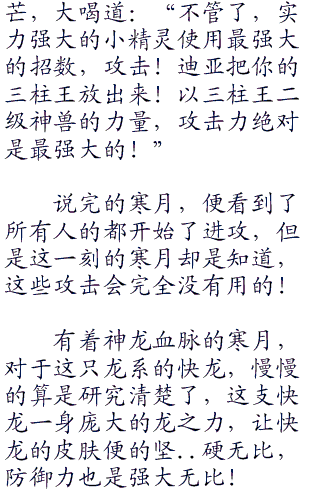 芒，大喝道：“不管了，实
力强大的小精灵使用最强大
的招数，攻击！迪亚把你的
三柱王放出来！以三柱王二
级神兽的力量，攻击力绝对
是最强大的！”
说完的寒月，便看到了
所有人的都开始了进攻，但
是这一刻的寒月却是知道，
这些攻击会完全没有用的！
有着神龙血脉的寒月，
对于这只龙系的快龙，慢慢
的算是研究清楚了，这支快
龙一身庞大的龙之力，让快
龙的皮肤便的坚..硬无比，
防御力也是强大无比！